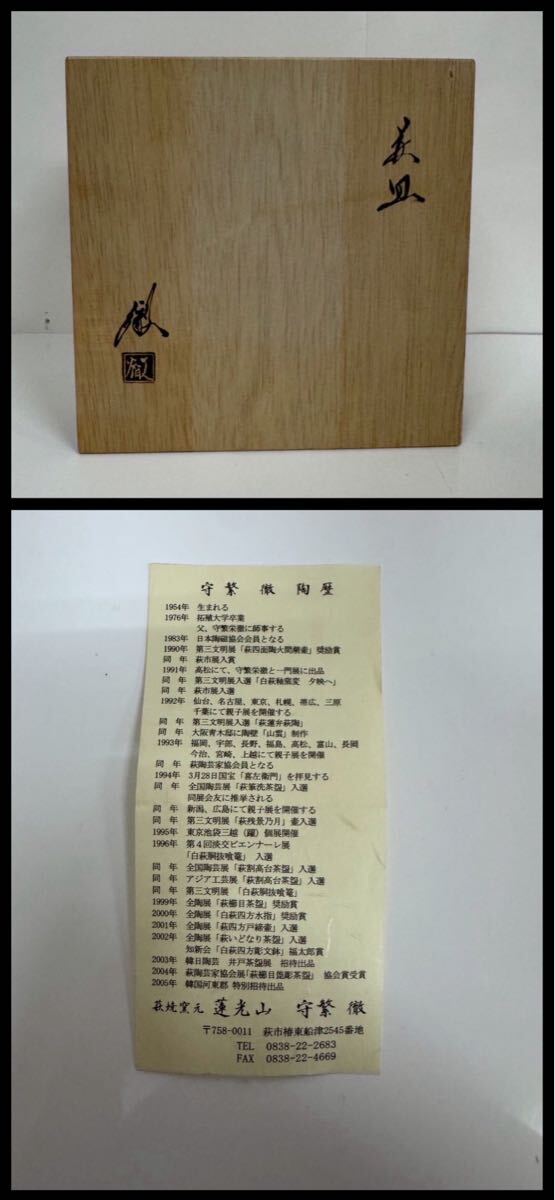 萩皿
徹
徹
守繁 徹 陶歴
1954年 生まれる
1976年 拓殖大学卒業
父、守繁栄徹に師事する
1983年 日本陶磁協会会員となる
1990年 第三文明展「萩四面陶火間窯壷」奨励賞
同 年 萩市展入賞
1991年 高松にて、守繁栄徹と一門展に出品
同 年 第三文明展入選「白萩釉窯変 夕映へ」
同 年 萩市展入選
1992年 仙台、名古屋、東京、札幌、帯広、三原
千葉にて親子展を開催する
同 年 第三文明展入選「萩蓮弁萩陶」
同 年 大阪青木邸に陶壁「山雲」制作
1993年 福岡、宇部、長野、福島、高松、富山、長岡
今治、宮崎、上越にて親子展を開催
同 年 萩陶芸家協会員となる
1994年 3月28日国宝「喜左衛門」を拝見する
同 年 全国陶芸展「萩筆洗茶盌」入選
同展会友に推挙される
同 年 新潟、広島にて親子展を開催する
同 年 第三文明展「萩残景乃月」壷入選
1995年 東京池袋三越（躍）個展開催
1996年 第4回淡交ビエンナーレ展
「白萩胴抜喰篭」 入選
同 年 全国陶芸展「萩割高台茶盌」入選
同 年 アジア工芸展「萩割高台茶盌」入選
同 年 第三文明展 「白萩胴抜喰篭」
1999年 全陶展「萩櫛目茶盌」奨励賞
2000年 全陶展「白萩四方水指」奨励賞
2001年 全陶展「萩四方戸締壷」入選
2002年 全陶展「萩いどなり茶盌」入選
知新会「白萩四方彫文鉢」福太郎賞
2003年 韓日陶芸 井戸茶盌展 招待出品
2004年 萩陶芸家協会展「萩櫛目箆彫茶盌」 協会賞受賞
2005年 韓国河東郡 特別招待出品
萩焼窯元 蓮光山 守繁 徹
〒758-0011 萩市椿東船津2545番地
TEL 0838-22-2683
FAX 0838-22-4669